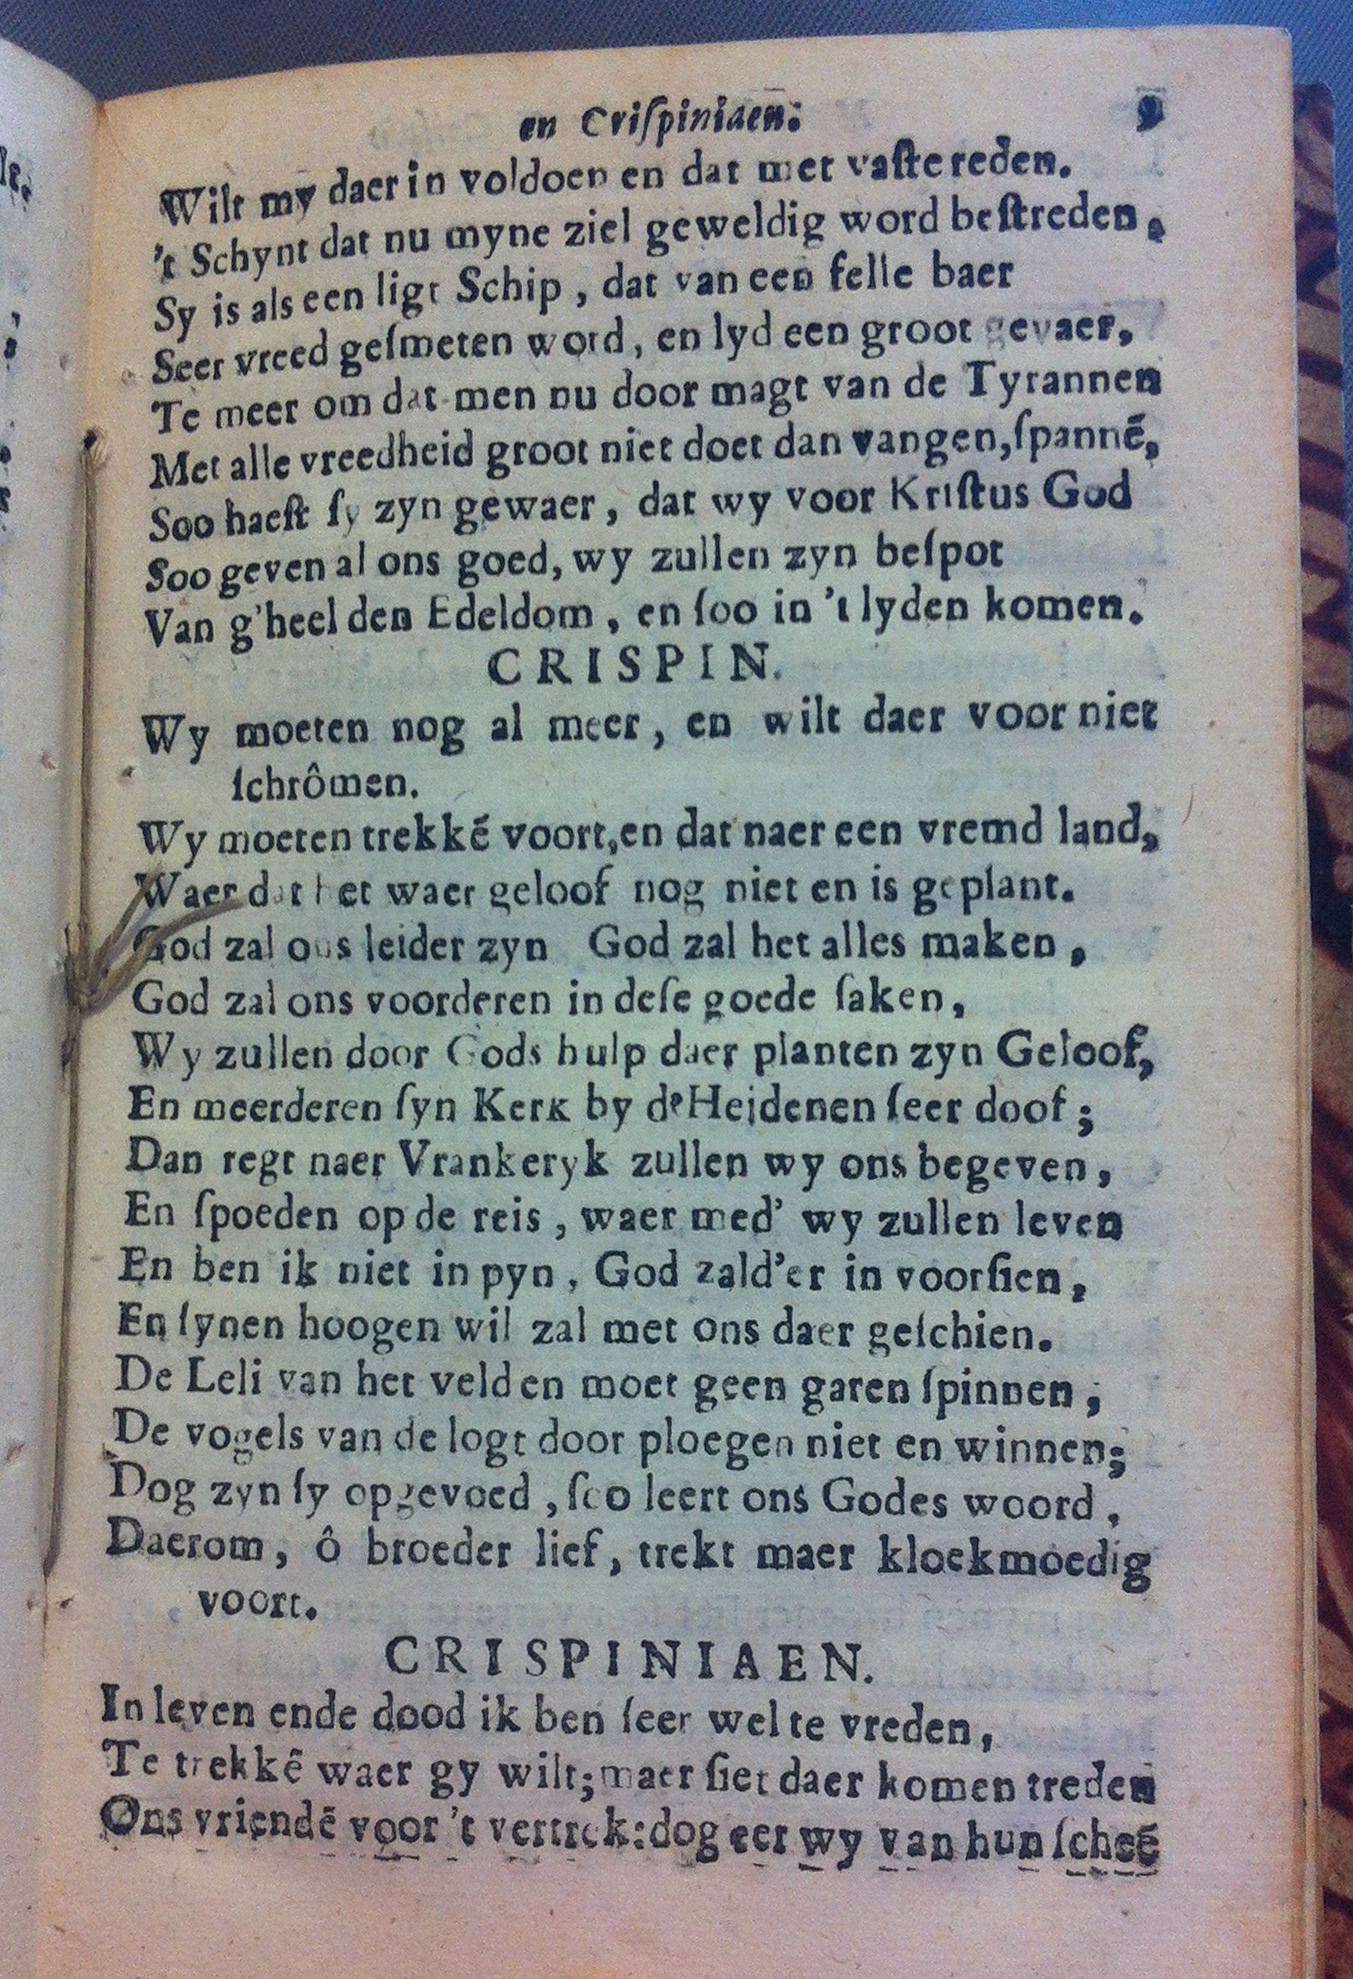 en Criſpiniaen. 9
Wilt my daer in voldoen en dat met vaſte reden.
't Schynt dat nu myne ziel geweldig word beſtreden,
Sy is als een ligt Schip, dat van een felle baer
Seer vreed geſmeten word, en lyd een groot gevaer,
Te meer om dat men nu door magt van de Tyrannen
Met alle vreedheid groot niet doet dan vangen, ſpannē,
Soo haeſt ſy zyn gewaer, dat wy voor Kriſtus God
Soo geven al ons goed, wy zullen zyn beſpot
Van g'heel den Edeldom, en ſoo in 't lyden komen.
CRISPIN.
Wy moeten nog al meer, en wilt daer voor niet
ſchrômen.
Wy moeten trekkē voort, en dat naer een vremd land,
Waer dat het waer geloof nog niet en is geplant.
God zal ons leider zyn God zal het alles maken,
God zal ons voorderen in deſe goede ſaken,
Wy zullen door Gods hulp daer planten zyn Geloof,
En meerderen ſyn Kerk by de Heidenen ſeer doof;
Dan regt naer Vrankeryk zullen wy ons begeven,
En ſpoeden op de reis, waer med' wy zullen leven
En ben ik niet in pyn, God zald'er in voorſien,
En ſynen hoogen wil zal met ons daer geſchien.
De Leli van het veld en moet geen garen ſpinnen,
De vogels van de logt door ploegen niet en winnen;
Dog zyn ſy opgevoed, ſoo leert ons Godes woord,
Daerom, ô broeder lief, trekt maer kloekmoedig
voort.
CRISPINIAEN.
In leven ende dood ik ben ſeer wel te vreden,
Te trekkē waer gy wilt; maer ſiet daer komen treden
Ons vriendē voor 't vertrek: dog eer wy van hun ſcheē